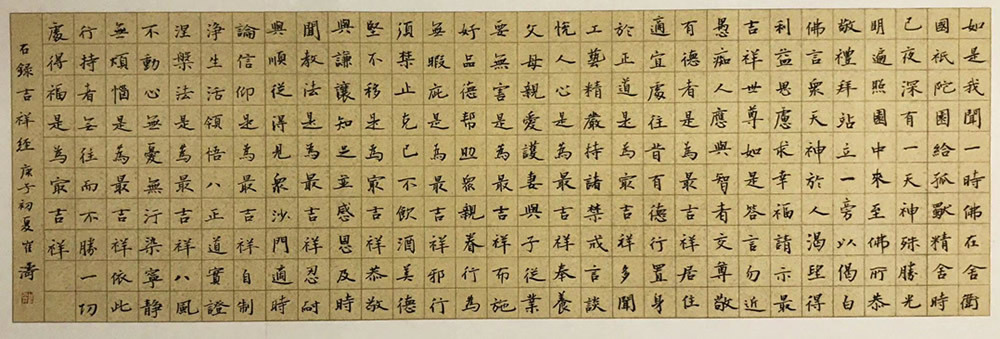 如是我聞一時佛在舍衛
國祇陀園給孤獨精舍時
已夜深有一天神殊勝光
明遍照園中來至佛所恭
敬禮拜站立一旁以偈白
佛言眾天神於人渴望得
利益思慮求幸福請示最
吉祥世尊如是答言勿近
愚痴人應與智者交尊敬
有德者是為最吉祥居住
適宜處往昔有德行置身
於正道是為最吉祥多聞
工藝精嚴持諸禁戒言談
悅人心是為最吉祥奉養
父母親愛護妻與子從業
要無害是為最吉祥布施
好品德帮助眾親眷行為
無瑕疵是為最吉祥邪行
須禁止克己不飲酒美德
堅不移是為最吉祥恭敬
與謙讓知足並感恩及時
聞教法是為最吉祥忍耐
與順從得見眾沙門適時
論信仰是為最吉祥自制
淨生活領悟八正道實證
涅槃法是為最吉祥八風
不動心無憂無污染寧静
無煩惱是為最吉祥依此
行持者无往而不勝一切
處得福是為最吉祥
右錄吉祥經庚子初夏崔濤